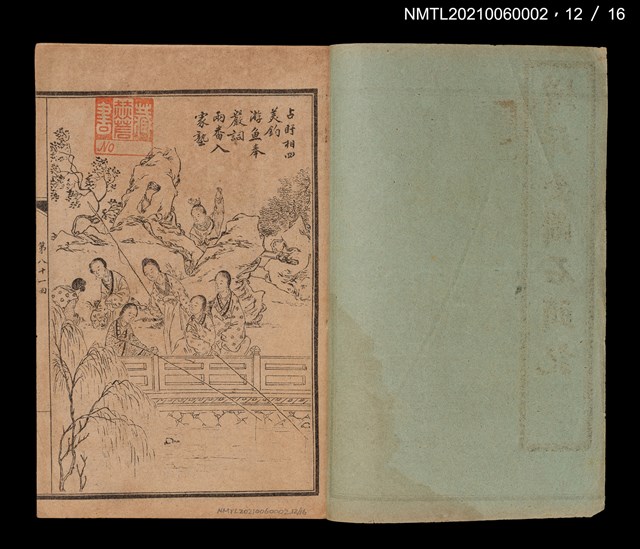 NMTL20210060002，12 / 16
占旺相四
美釣
游魚奉
嚴詞
兩番入
家塾
藏
書
No
第八十一回
石頭記
NMTL20210060002 12/16